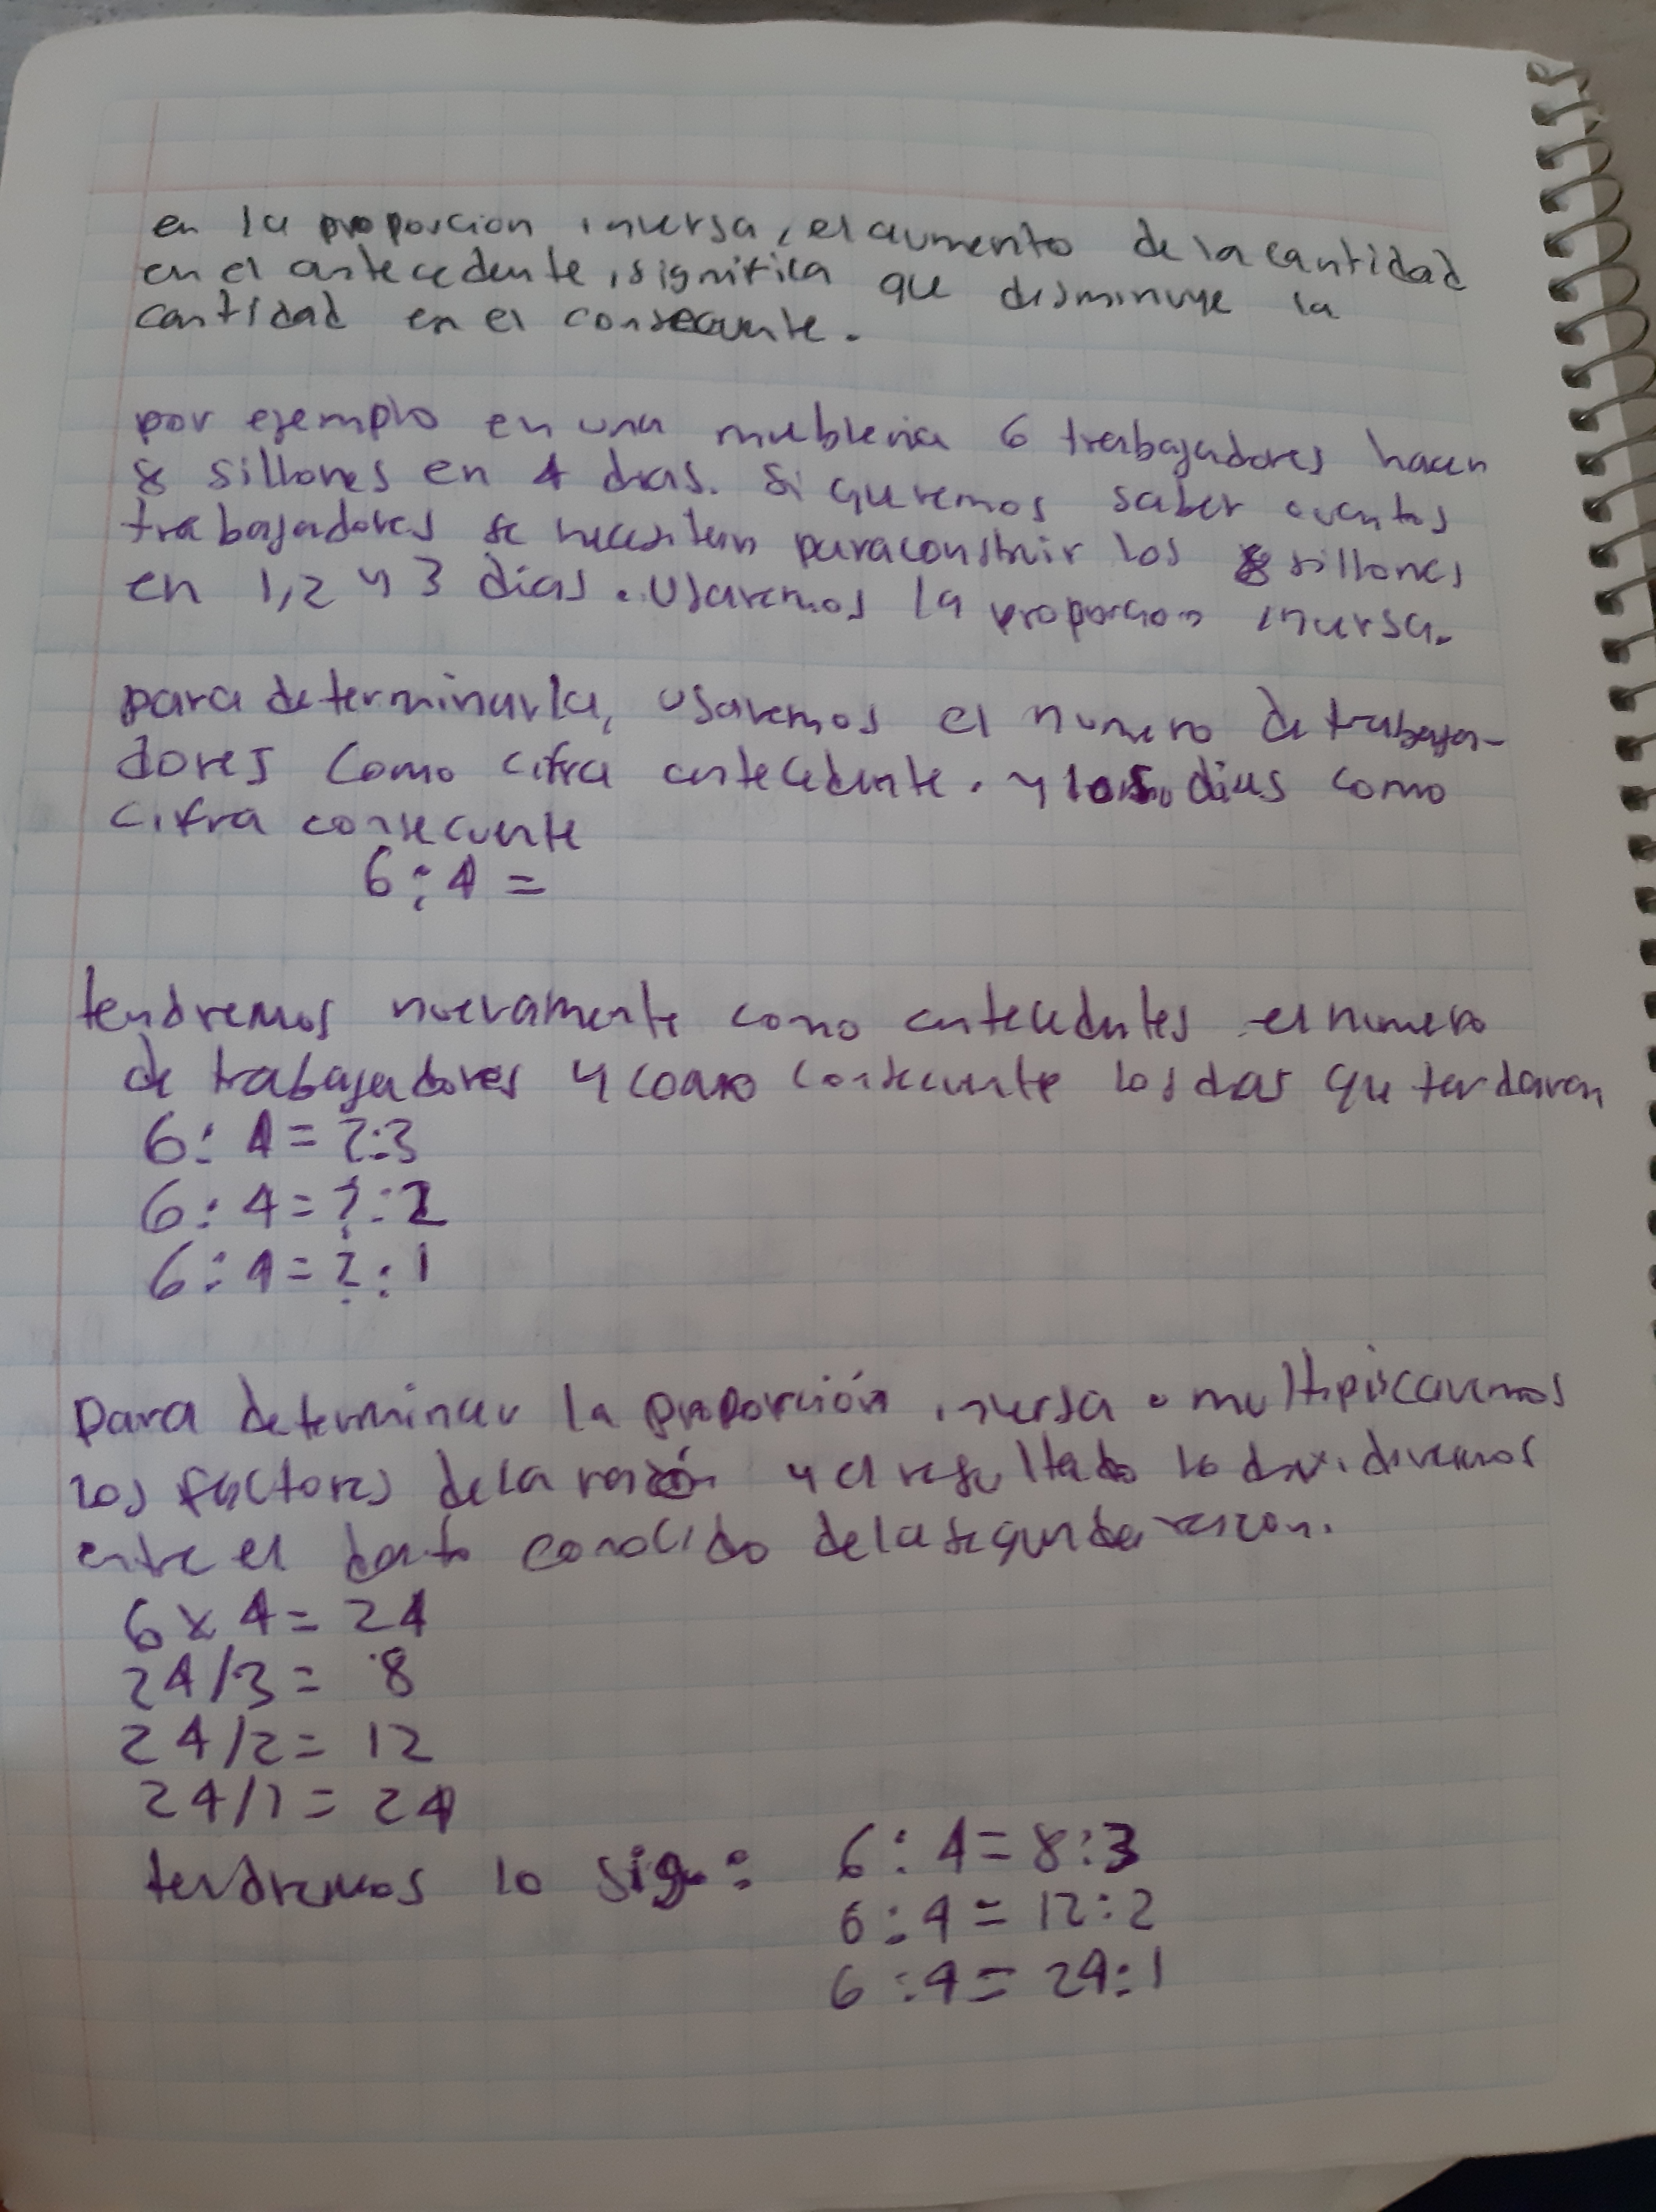 en la proporcion inversa, el aumento de la cantidad
en el antecedente, significa que disminuye la
cantidad en el consecuente.
por ejemplo en una muebleria 6 trabajadores hacen
8 sillones en 4 dias. Si queremos saber cuantos
trabajadores se necesitan para construir los 8 sillones
en 1,2 y 3 dias. Usaremos la proporcion inversa.
para determinarla, usaremos el numero de trabaja-
dores como cifra antecedente. y los dias como
cifra consecuente
6:4=
tendremos nuevamente como antecedentes el numero
de trabajadores y como consecuente los dias que tardaran
6:4=?:3
6:4=?:2
6:4=?:1
Para determinar la proporción inversa multiplicaremos
los factores de la razón y el resultado lo dividiremos
entre el dato conocido de la segunda razon.
6x4=24
24/3=8
24/2=12
24/1=24
tendremos lo sig: 6:4=8:3
6:4=12:2
6:4=24:1